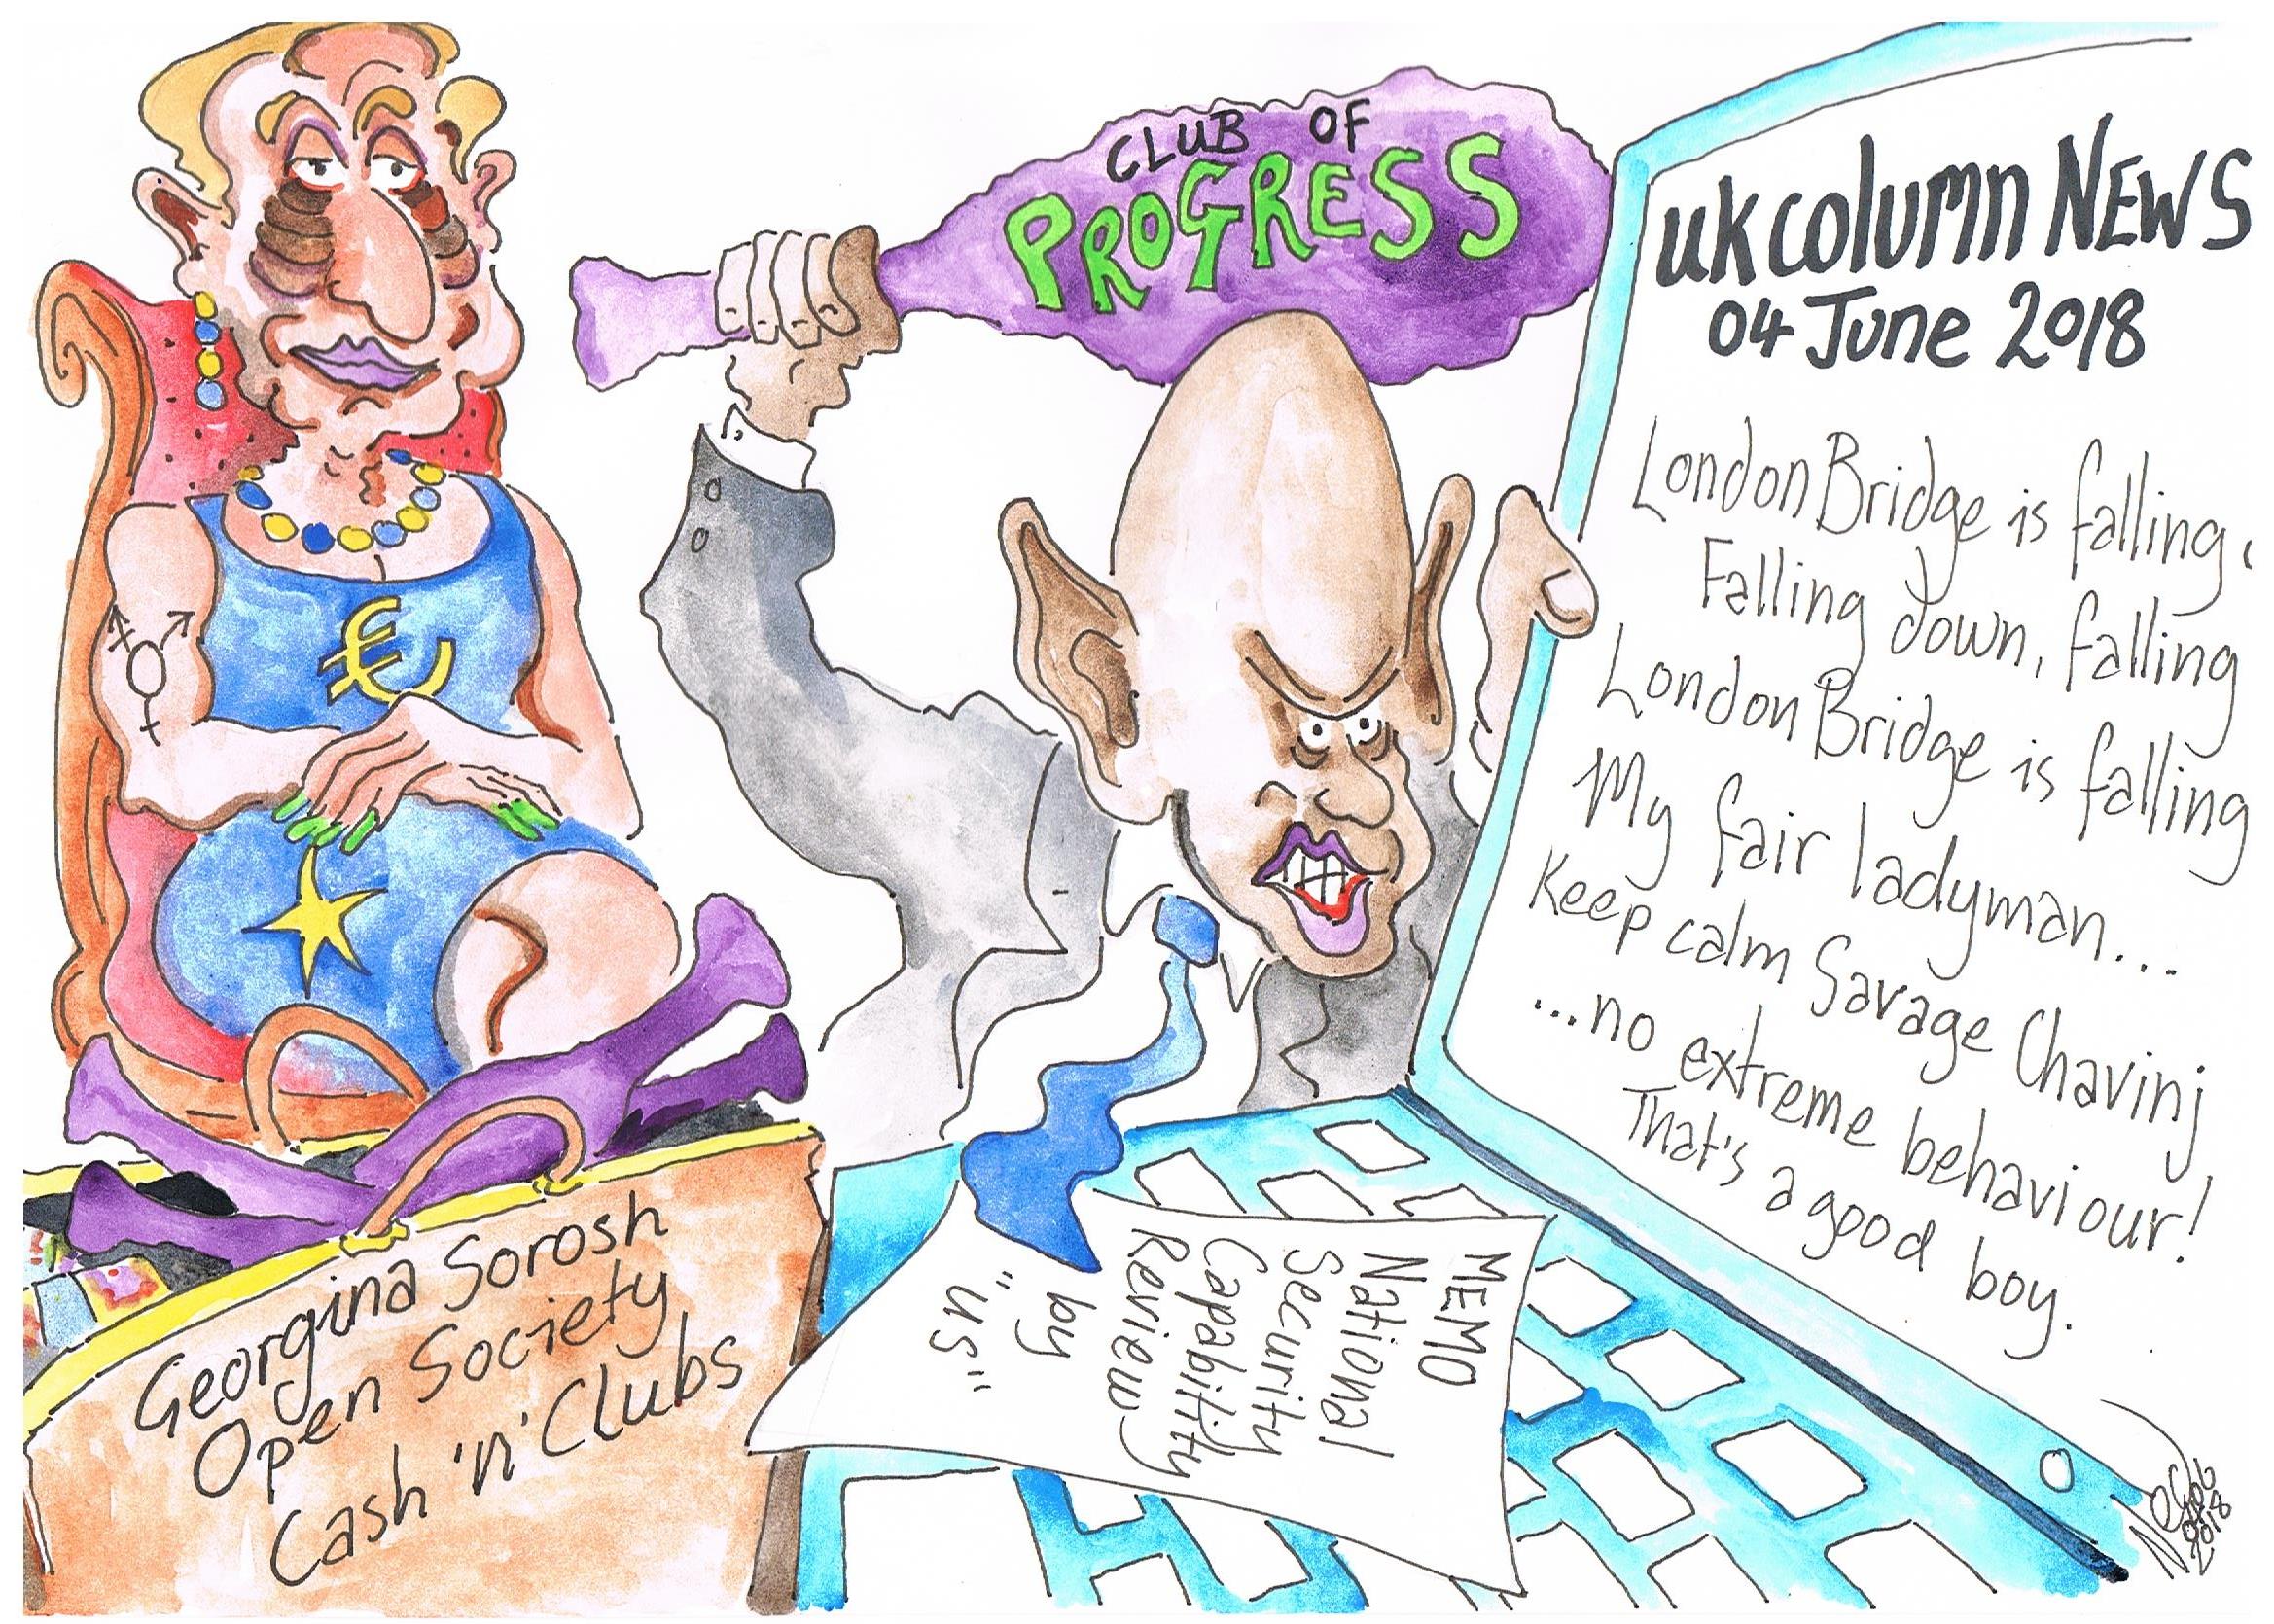 CLUB OF
PROGRESS
UK Column NEWS
04 June 2018
London Bridge is falling,
Falling down, falling
London Bridge is falling
My fair ladyman...
Keep calm Savage Chavinj
...no extreme behaviour!
That's a good boy.
Georgina Sorosh
Open Society
Cash 'n' Clubs
MEMO
National
Security
Capability
Review
by
"us"
2018